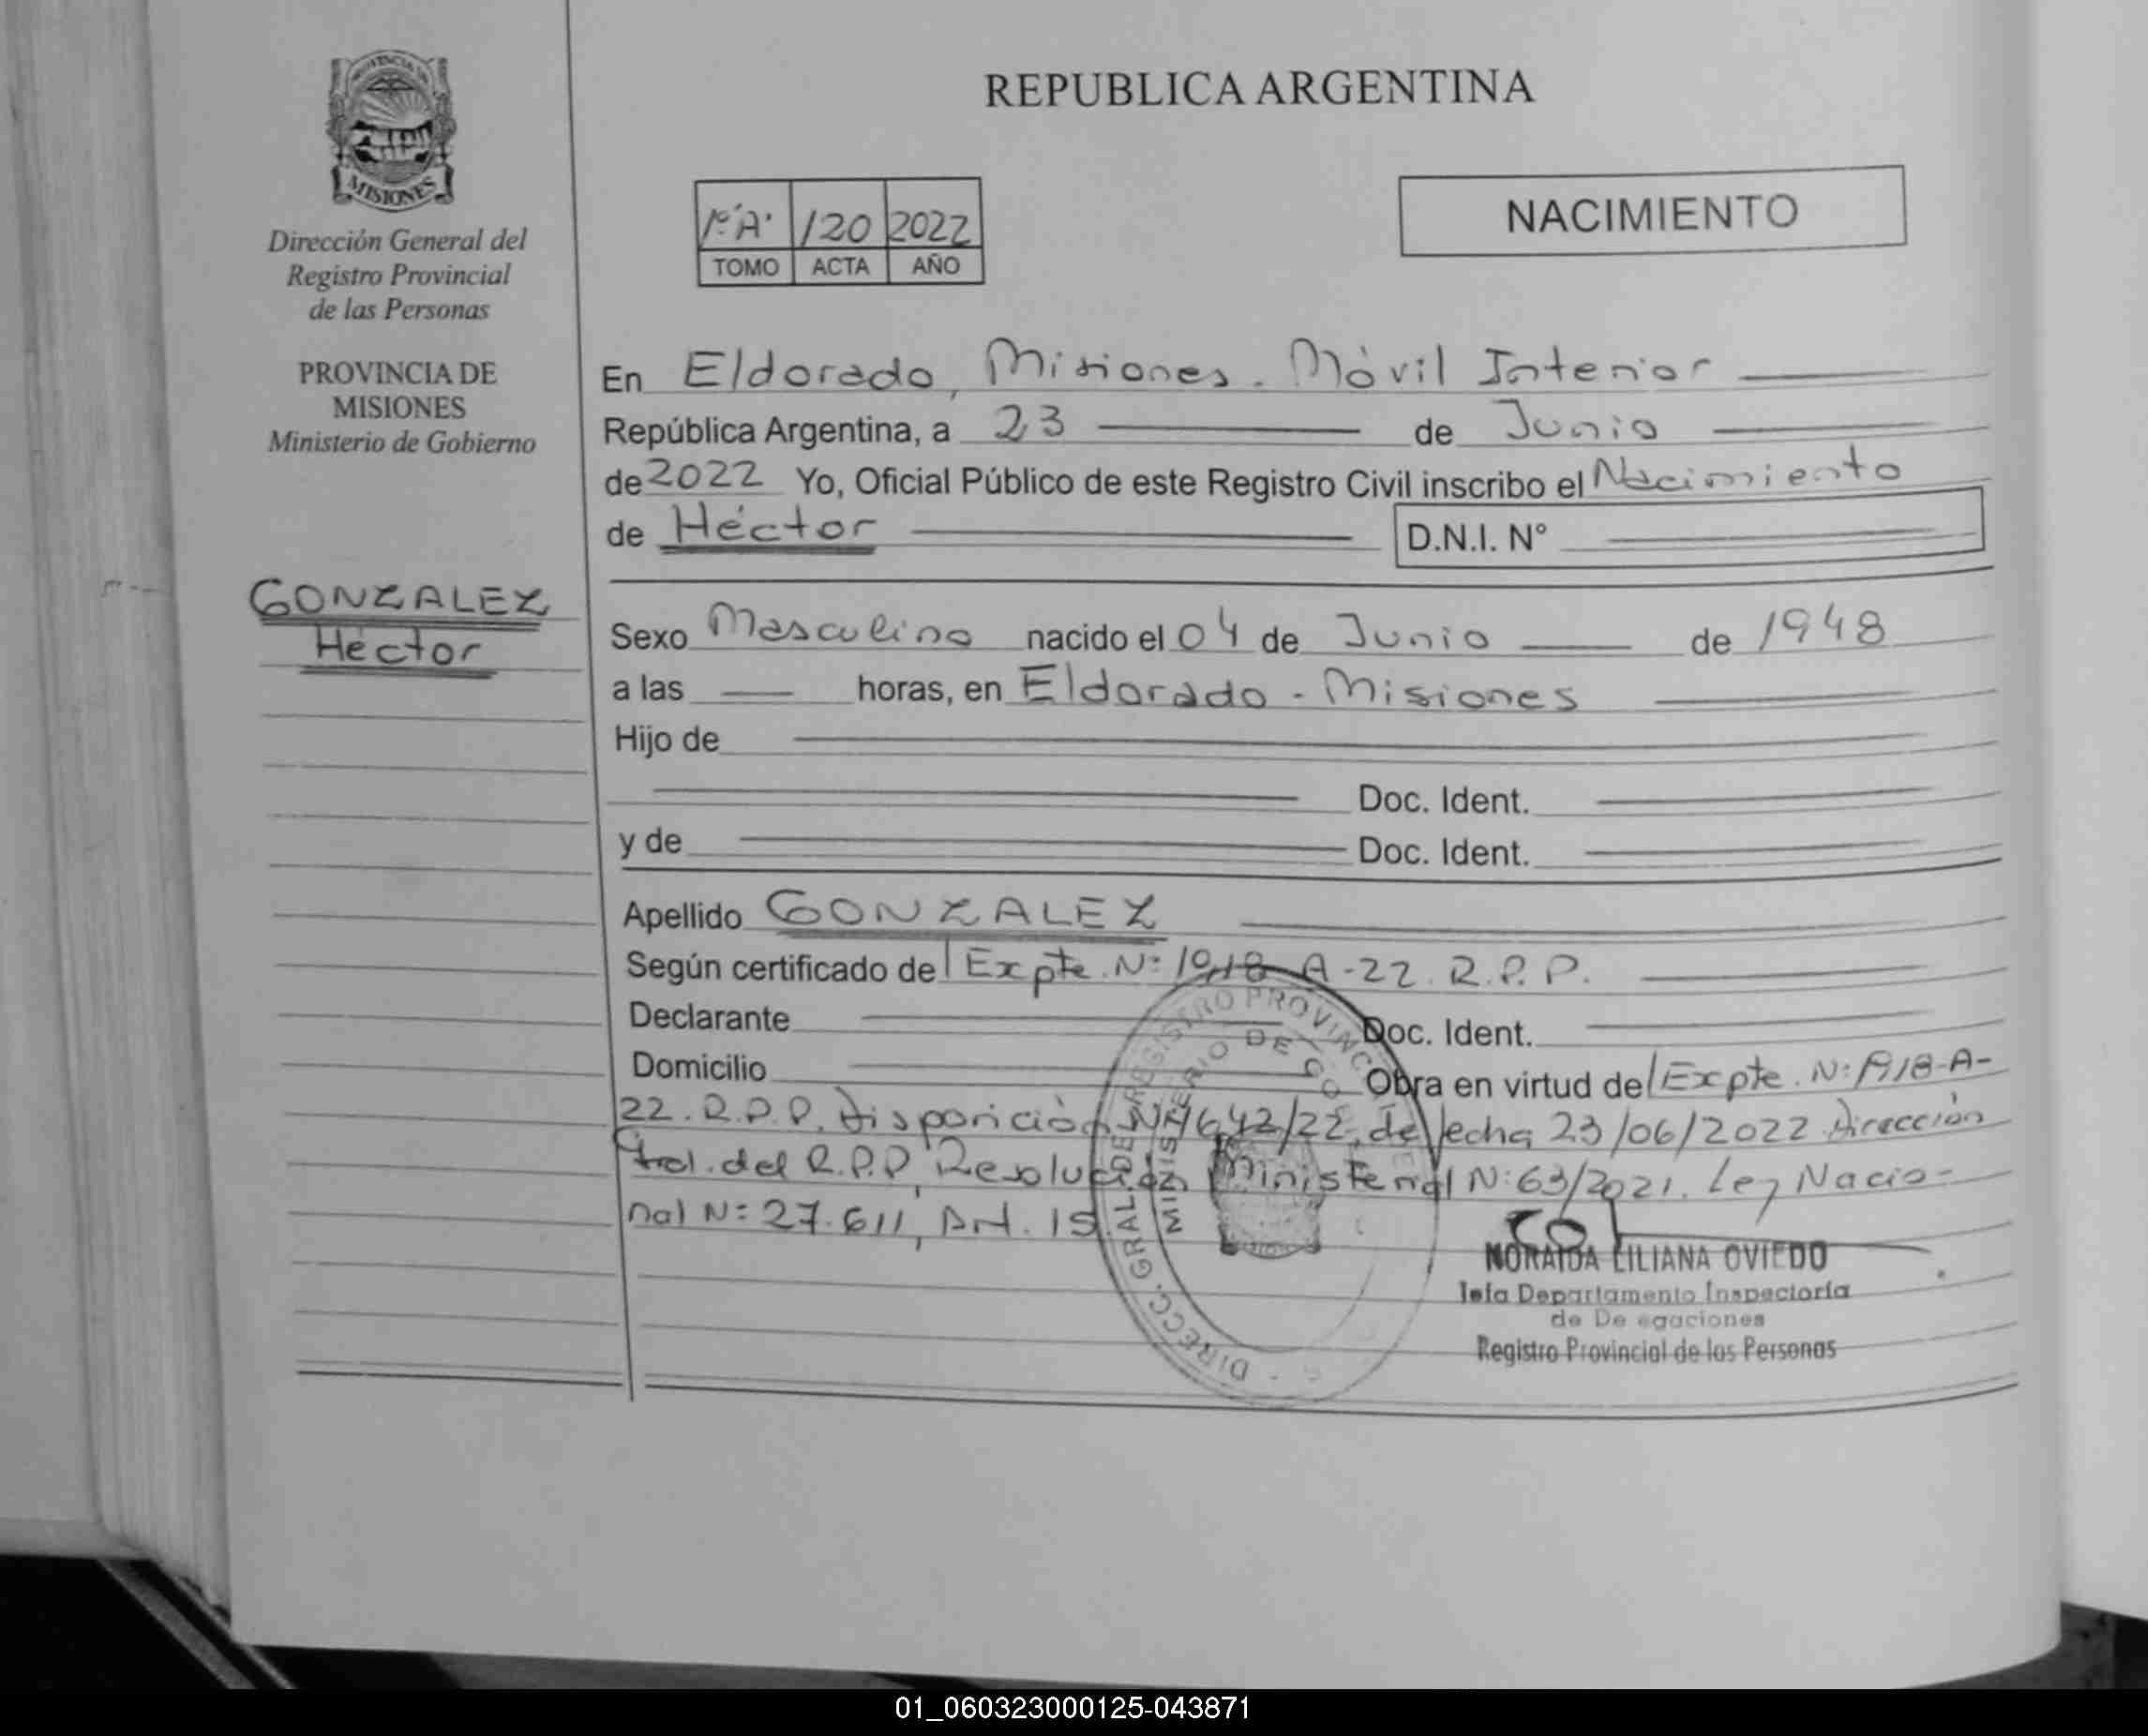 PROVINCIA DE
MISIONES
Dirección General del
Registro Provincial
de las Personas
PROVINCIA DE
MISIONES
Ministerio de Gobierno
GONZALEZ
Héctor
REPUBLICA ARGENTINA
1º"A" 120 2022
TOMO ACTA AÑO
NACIMIENTO
En Eldorado, Misiones. Móvil Interior
República Argentina, a 23 de Junio
de 2022 Yo, Oficial Público de este Registro Civil inscribo el Nacimiento
de Héctor D.N.I. Nº
Sexo Masculino nacido el 04 de Junio de 1948
a las horas, en Eldorado - Misiones
Hijo de
Doc. Ident.
y de Doc. Ident.
Apellido GONZALEZ
Según certificado de Expte. Nº 1918-A-22. R.P.P.
Declarante Doc. Ident.
Domicilio Obra en virtud de Expte. Nº 1918-A-
22. R.P.P. Disposición Nº 1642/22, de fecha 23/06/2022 Dirección
Gral. del R.P.P, Resolución Ministerial Nº 63/2021. Ley Nacio-
nal Nº 27.611, Art. 15
DIRECC. GRAL. DEL REGISTRO PROVINC
MINISTERIO DE GO
NORAIDA LILIANA OVIEDO
Jefa Departamento Inspectoría
de De egaciones
Registro Provincial de las Personas
01_060323000125-043871